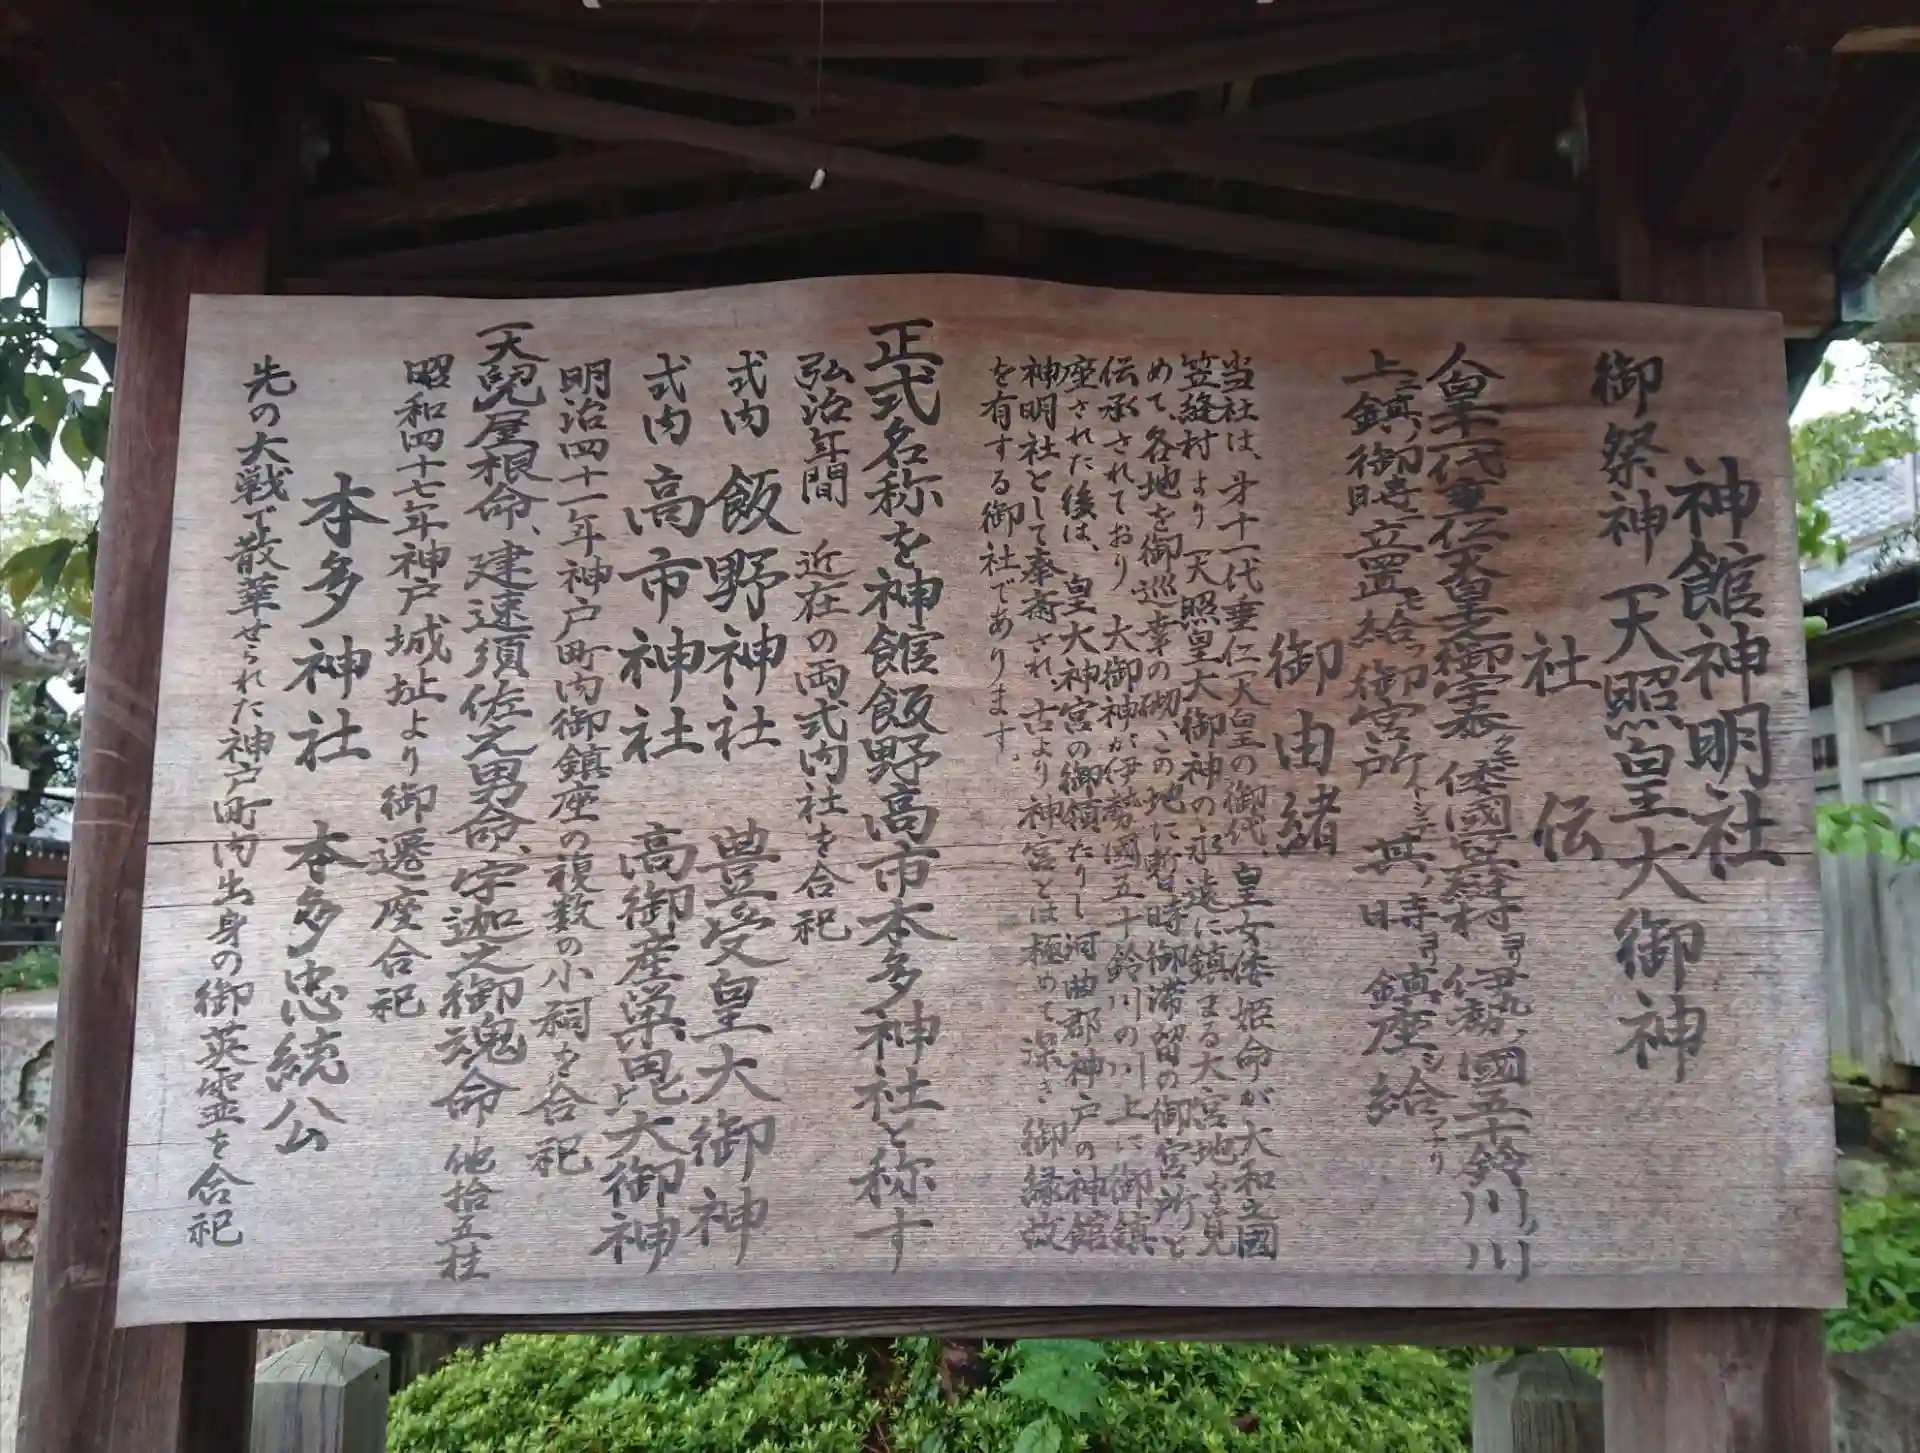 神館神明社
御祭神 天照皇大御神
社伝
人皇十一代垂仁天皇之御宇泰 倭國笠縫村ヨリ 伊勢國五十鈴川ノ川
上ニ鎮ノ御時ニ立置セ給フ御宮所 其ノ寺ヨリ 鎮座シ給
御由緒
当社は、才十一代垂仁天皇の御代、皇女倭姫命が大和之國
笠縫村より天照皇大御神の永遠に鎮まる大宮地を覓
めて、各地を御巡幸の砌、この地に暫時御滞留の御宮所と
伝承されており 大御神が伊勢國五十鈴川の川上に御鎮
座された後は、皇大神宮の御領たりし河曲郡神戸の神館
神明社として奉斎され古より神宮とは極めて深き御縁故
を有する御社であります。
正式名称を神館飯野高市本多神社と称す
弘治年間 近在の両式内社を合祀
式内 飯野神社 豊受皇大御神
式内 高市神社 高御産巣毘上大御神
明治四十一年神戸町内御鎮座の複数の小祠を合祀
天兒屋根命、建速須佐之男命、宇迦之御魂命 他拾五柱
昭和四十七年神戸城址より御遷座合祀
本多神社 本多忠統公
先の大戦で散華せられた神戸町内出身の御英霊を合祀